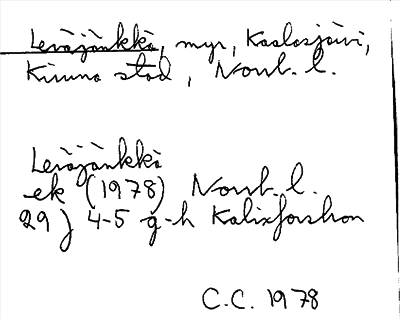 Leväjänkkä, myr, Kaalasjärvi,
Kiruna stad, Norrb. l.
Leväjänkkä
ek (1978) Norrb. l.
29J 4-5 g-h Kalixforsbron
C.C. 1978